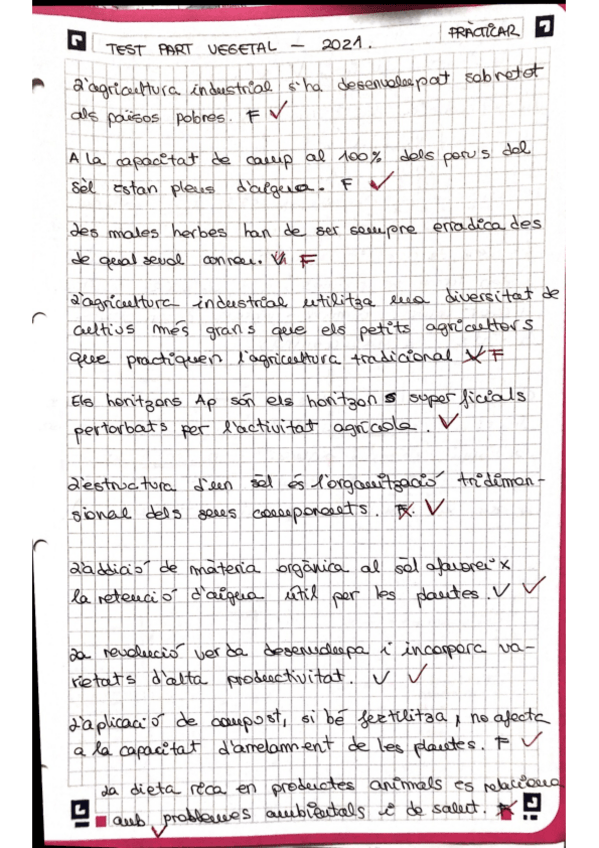 PRÀCTICAR
TEST PART VEGETAL - 2021.
L'agricultura industrial s'ha desenvolupat sobretot
als països pobres. F ✓
A la capacitat de camp al 100% dels porus del
sòl estan plens d'aigua. F ✓
Les males herbes han de ser sempre erradicades
de qualsevol conreu. V F
L'agricultura industrial utilitza una diversitat de
cultius més grans que els petits agricultors
que practiquen l'agricultura tradicional V F
Els horitzons Ap són els horitzons superficials
pertorbats per l'activitat agrícola. V
L'estructura d'un sòl és l'organització tridimen-
sional dels seus components. F V
L'addició de matèria orgànica al sòl afavoreix
la retenció d'aigua útil per les plantes. V ✓
La revolució verda desenvolupa i incorpora va-
rietats d'alta productivitat. V ✓
L'aplicació de compost, si bé fertilitza, no afecta
a la capacitat d'arrelament de les plantes. F ✓
La dieta rica en productes animals es relaciona
amb problemes ambientals i de salut.